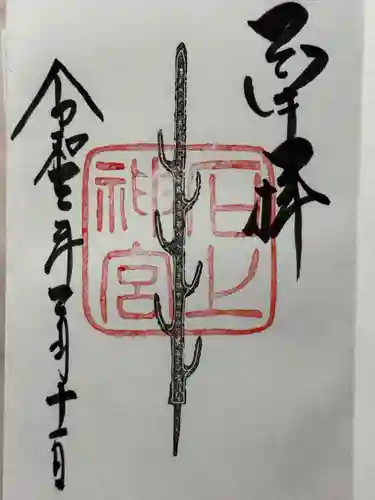 奉拝
石上
神宮
令和三年三月十一日